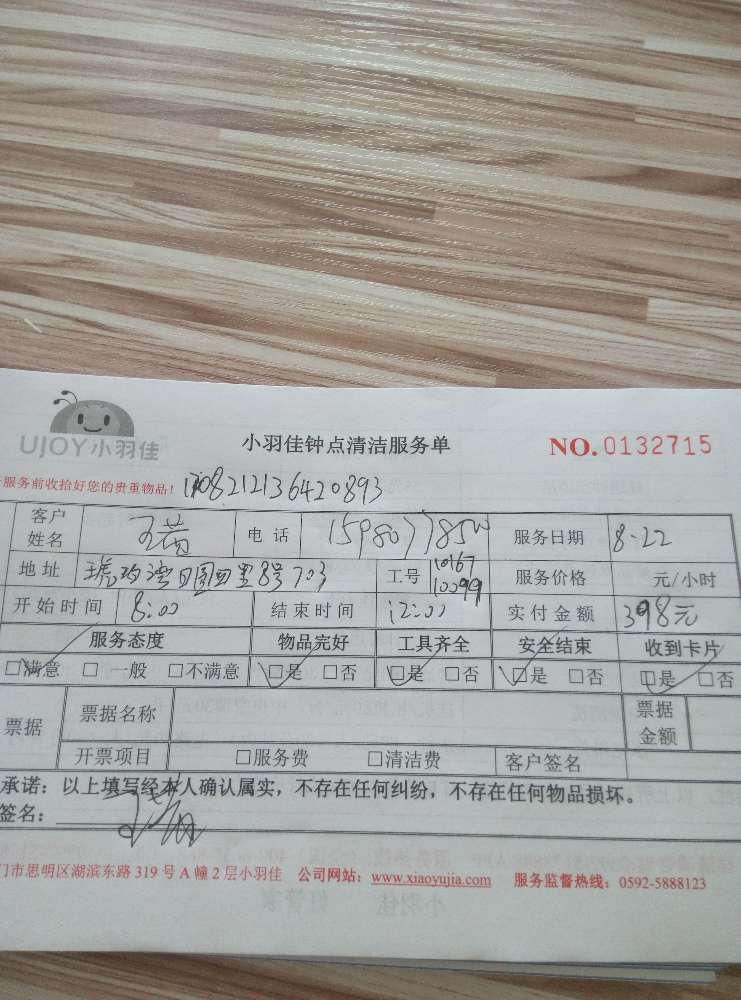 UJOY小羽佳
小羽佳钟点清洁服务单
NO.0132715
服务前收拾好您的贵重物品!
客户姓名 电话 服务日期 8-22
地址 工号 10167 10099 服务价格 元/小时
开始时间 8:00 结束时间 12:00 实付金额 398元
服务态度 物品完好 工具齐全 安全结束 收到卡片
□满意 □一般 □不满意 □是 □否 □是 □否 □是 □否 □是 □否
票据 票据名称 票据金额
开票项目 □服务费 □清洁费 客户签名
承诺：以上填写经本人确认属实，不存在任何纠纷，不存在任何物品损坏。
签名：
门市思明区湖滨东路 319 号 A 幢 2 层小羽佳 公司网站：www.xiaoyujia.com 服务监督热线：0592-5888123